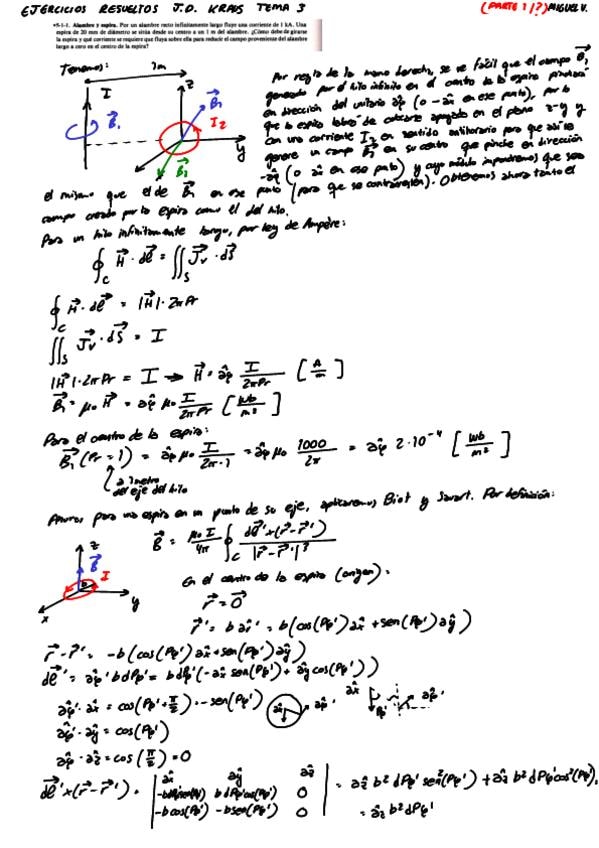 EJERCICIOS RESUELTOS J.D. KRAUS TEMA 3 (PARTE 1/?) MIGUEL V.
•5-1-1. Alambre y espira. Por un alambre recto infinitamente largo fluye una corriente de 1 kA. Una
espira de 20 mm de diámetro se sitúa desde su centro a un 1 m del alambre. ¿Cómo debe de girarse
la espira y qué corriente se requiere que fluya sobre ella para reducir el campo proveniente del alambre
largo a cero en el centro de la espira?
Tenemos:
1m
I
B⃗₁
z
B⃗₁
I₂
y
x
B⃗₂
Por regla de la mano derecha, se ve fácil que el campo B⃗₁
generado por el hilo infinito en el centro de la espira
en dirección del unitario âφ (o -âx en ese punto), por lo
que la espira habrá de colocarse apoyada en el plano z-y y
con una corriente I₂ en sentido antihorario para que así se
genere un campo B⃗₂ en su centro que pinche en dirección
-âφ (o âx en ese punto) y cuyo módulo impondremos que sea
el mismo que el de B⃗₁ en ese punto (para que se contrarresten). Obtenemos ahora tanto el
campo creado por la espira como el del hilo.
Para un hilo infinitamente largo, por ley de Ampère:
∮_C H⃗ · dl⃗ = ∬_S J⃗v · dS⃗
∮_C H⃗ · dl⃗ = |H⃗| · 2πPr
∬_S J⃗v · dS⃗ = I
|H⃗| · 2πPr = I → H⃗ = âφ I/(2πPr) [A/m]
B⃗₁ = μ₀ H⃗ = âφ μ₀ I/(2πPr) [Wb/m²]
Para el centro de la espira:
B⃗₁ (Pr = 1) = âφ μ₀ I/(2π·1) = âφ μ₀ 1000/(2π) = âφ 2·10⁻⁴ [Wb/m²]
a 1 metro
del eje del hilo
Ahora para una espira en un punto de su eje, aplicaremos Biot y Savart. Por definición:
B⃗ = (μ₀ I/4π) ∮_C dl⃗'×(r⃗-r⃗')/|r⃗-r⃗'|³
z
B⃗
I
b
x
y
En el centro de la espira (origen):
r⃗ = 0⃗
r⃗' = b âr' = b(cos(Pφ') âx + sen(Pφ') ây)
r⃗-r⃗' = -b(cos(Pφ') âx + sen(Pφ') ây)
dl⃗' = âφ' b dPφ' = b dPφ' (-âx sen(Pφ') + ây cos(Pφ'))
âφ' · âx = cos(Pφ' + π/2) = -sen(Pφ')
âφ' · ây = cos(Pφ')
âφ · âz = cos(π/2) = 0
dl⃗'×(r⃗-r⃗') = | âx ây âz
-b dPφ' sen(Pφ') b dPφ' cos(Pφ') 0
-b cos(Pφ') -b sen(Pφ') 0 | = âz b² dPφ' sen²(Pφ') + âz b² dPφ' cos²(Pφ') =
= âz b² dPφ'